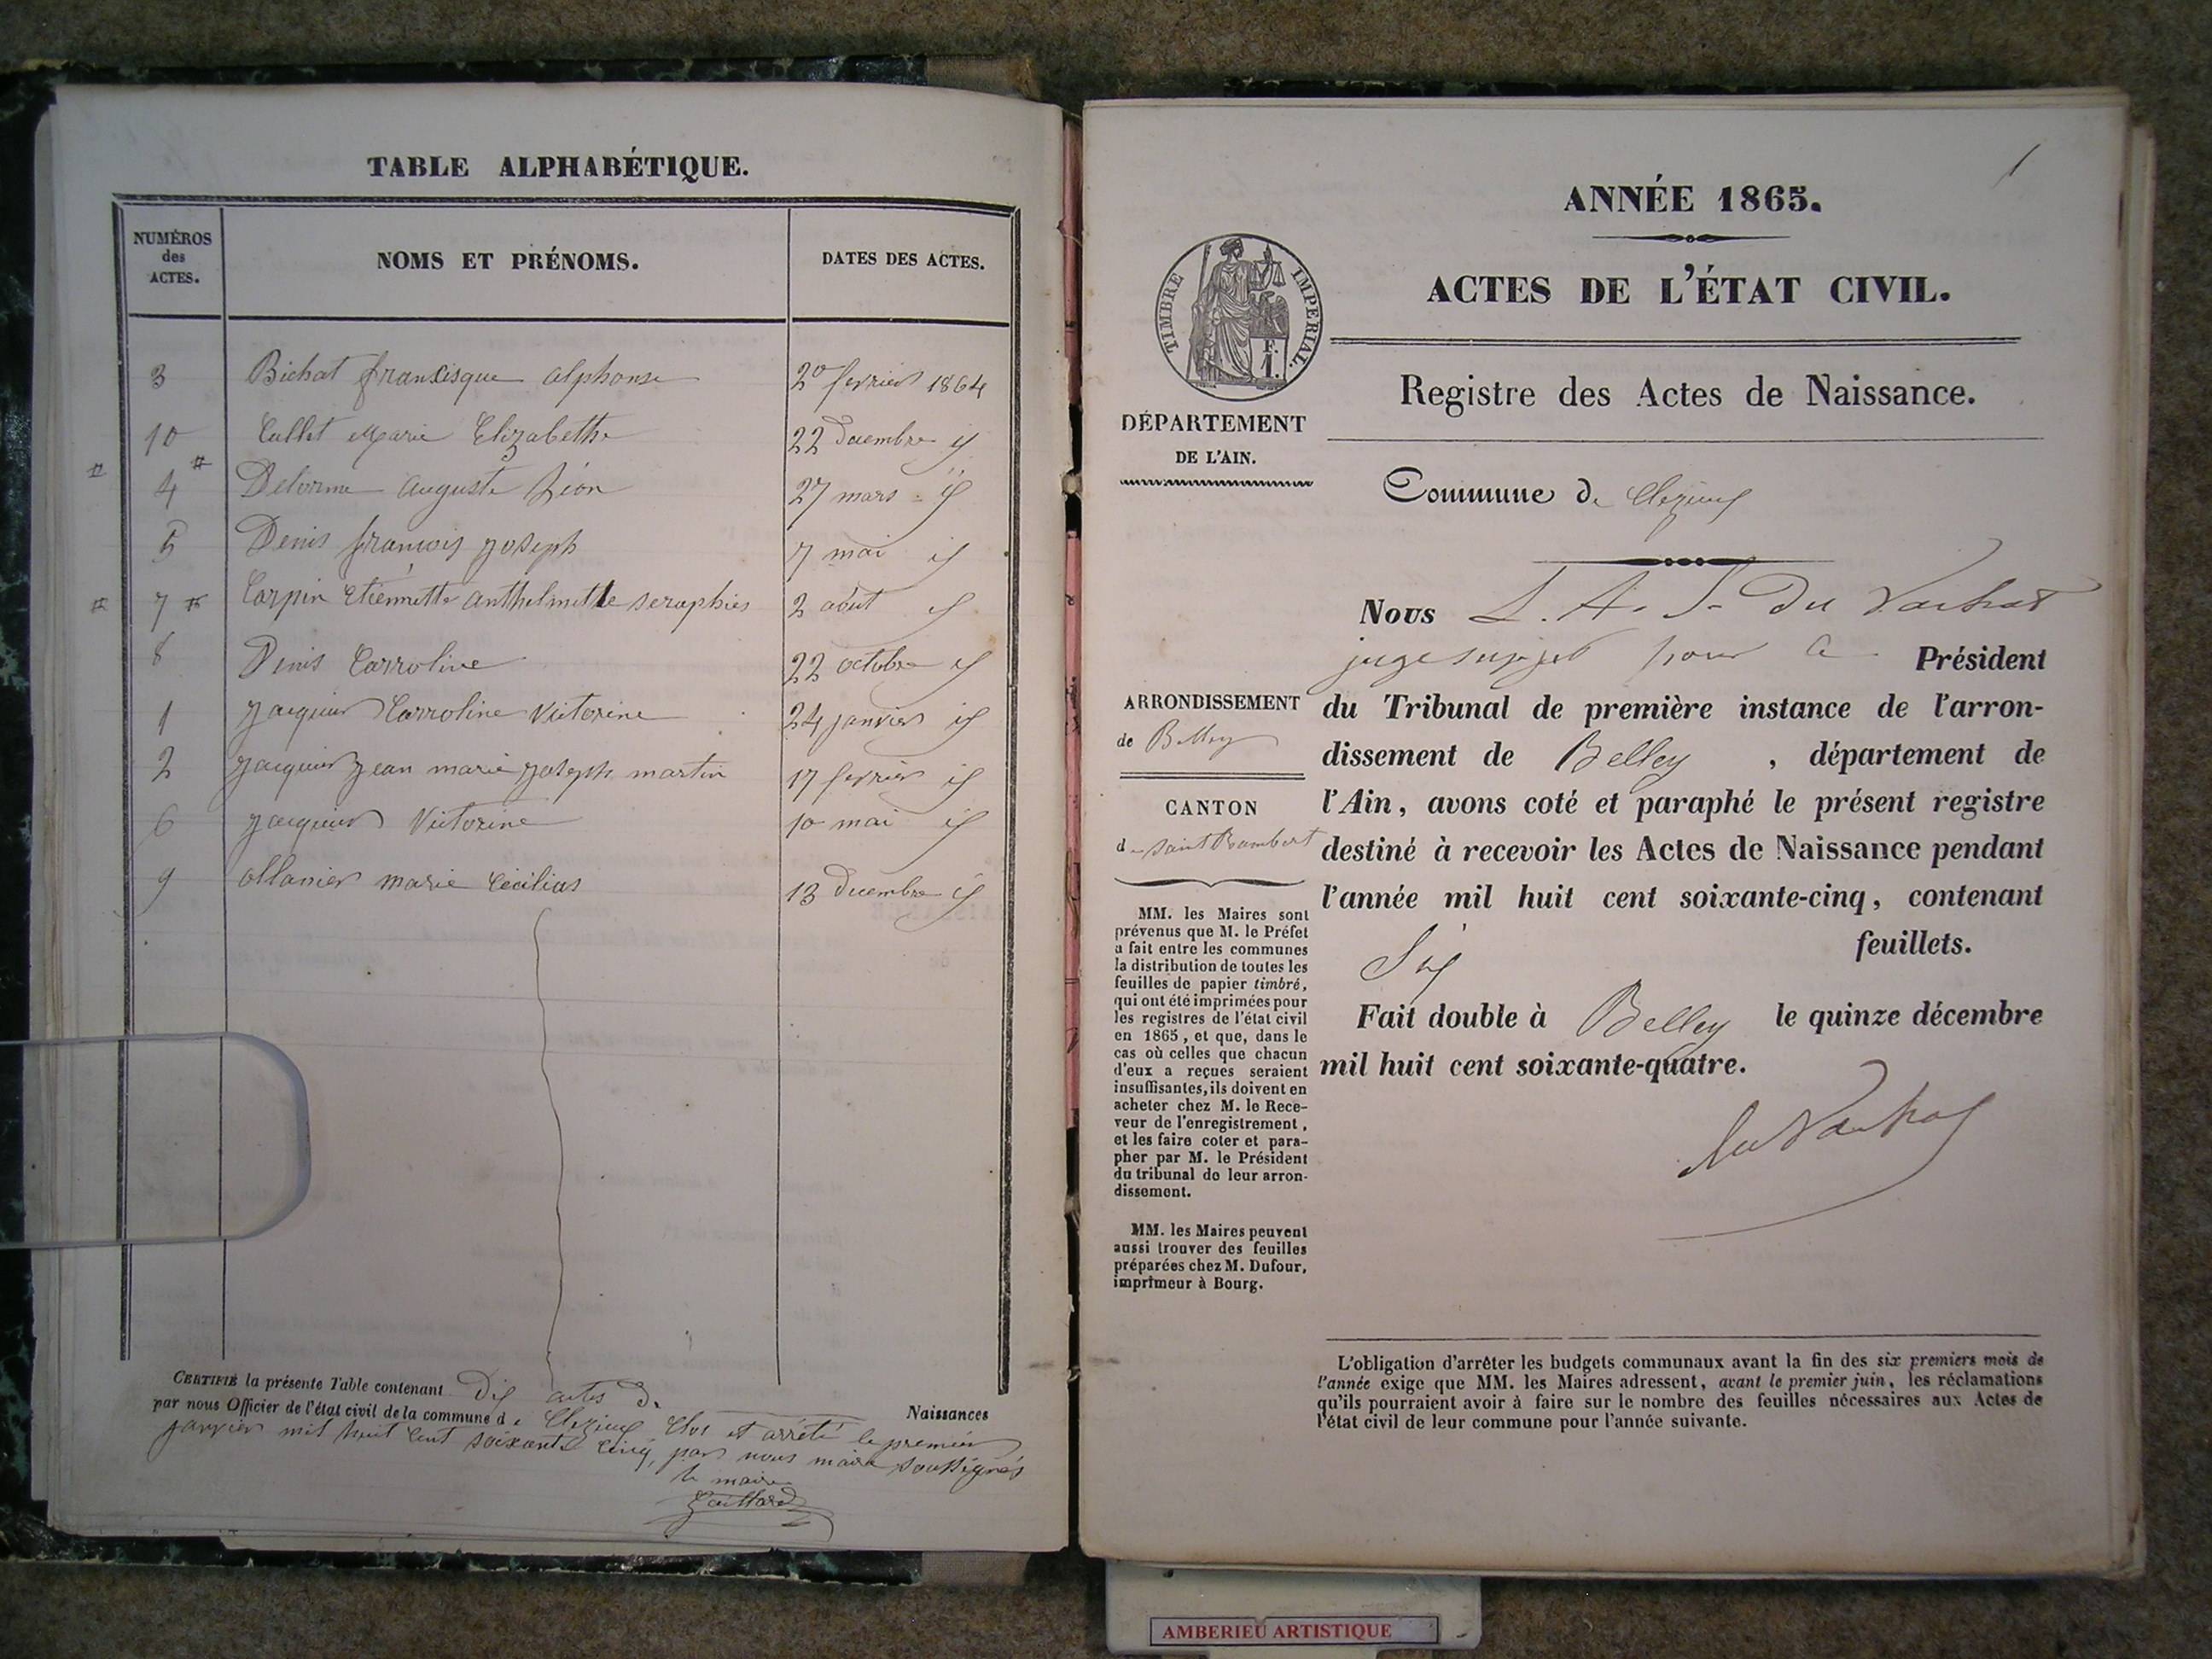 TABLE ALPHABÉTIQUE.
NUMÉROS
des
ACTES.
NOMS ET PRÉNOMS.
DATES DES ACTES.
3 Bichat franxisque alphonse 20 fevrier 1864
10 Cullet Marie Elizabethe 22 decembre id
4 Delorme auguste Léon 27 mars id
5 Denis françois joseph 7 mai id
7 Carpin Etiennette anthelmette seraphies 2 août id
8 Denis Carroline 22 octobre id
1 jacquier Carroline Victorine 24 janvier id
2 jacquier jean marie joseph martin 17 fevrier id
6 jacquier Victorine 10 mai id
9 ollanier marie Cécilias 13 decembre id
CERTIFIÉ la présente Table contenant Dix actes de Naissances
par nous Officier de l'état civil de la commune de Clezieux Clos et arrêté le premier
janvier mil huit cent soixante cinq, par nous maire soussignés
le maire
Gaillard
1
ANNÉE 1865.
ACTES DE L'ÉTAT CIVIL.
TIMBRE IMPERIAL.
F.
1.
Registre des Actes de Naissance.
DÉPARTEMENT
DE L'AIN.
Commune de Clezieux
Nous L. A. J. Du Vachat
juge suppl pour le Président
du Tribunal de première instance de l'arron-
dissement de Belley, département de
l'Ain, avons coté et paraphé le présent registre
destiné à recevoir les Actes de Naissance pendant
l'année mil huit cent soixante-cinq, contenant
Six feuillets.
Fait double à Belley le quinze décembre
mil huit cent soixante-quatre.
du Vachat
ARRONDISSEMENT
de Belley
CANTON
de saint Rambert
MM. les Maires sont
prévenus que M. le Préfet
a fait entre les communes
la distribution de toutes les
feuilles de papier timbré,
qui ont été imprimées pour
les registres de l'état civil
en 1865, et que, dans le
cas où celles que chacun
d'eux a reçues seraient
insuffisantes, ils doivent en
acheter chez M. le Rece-
veur de l'enregistrement,
et les faire coter et para-
pher par M. le Président
du tribunal de leur arron-
dissement.
MM. les Maires peuvent
aussi trouver des feuilles
préparées chez M. Dufour,
imprimeur à Bourg.
L'obligation d'arrêter les budgets communaux avant la fin des six premiers mois de
l'année exige que MM. les Maires adressent, avant le premier juin, les réclamations
qu'ils pourraient avoir à faire sur le nombre des feuilles nécessaires aux Actes de
l'état civil de leur commune pour l'année suivante.
AMBERIEU ARTISTIQUE